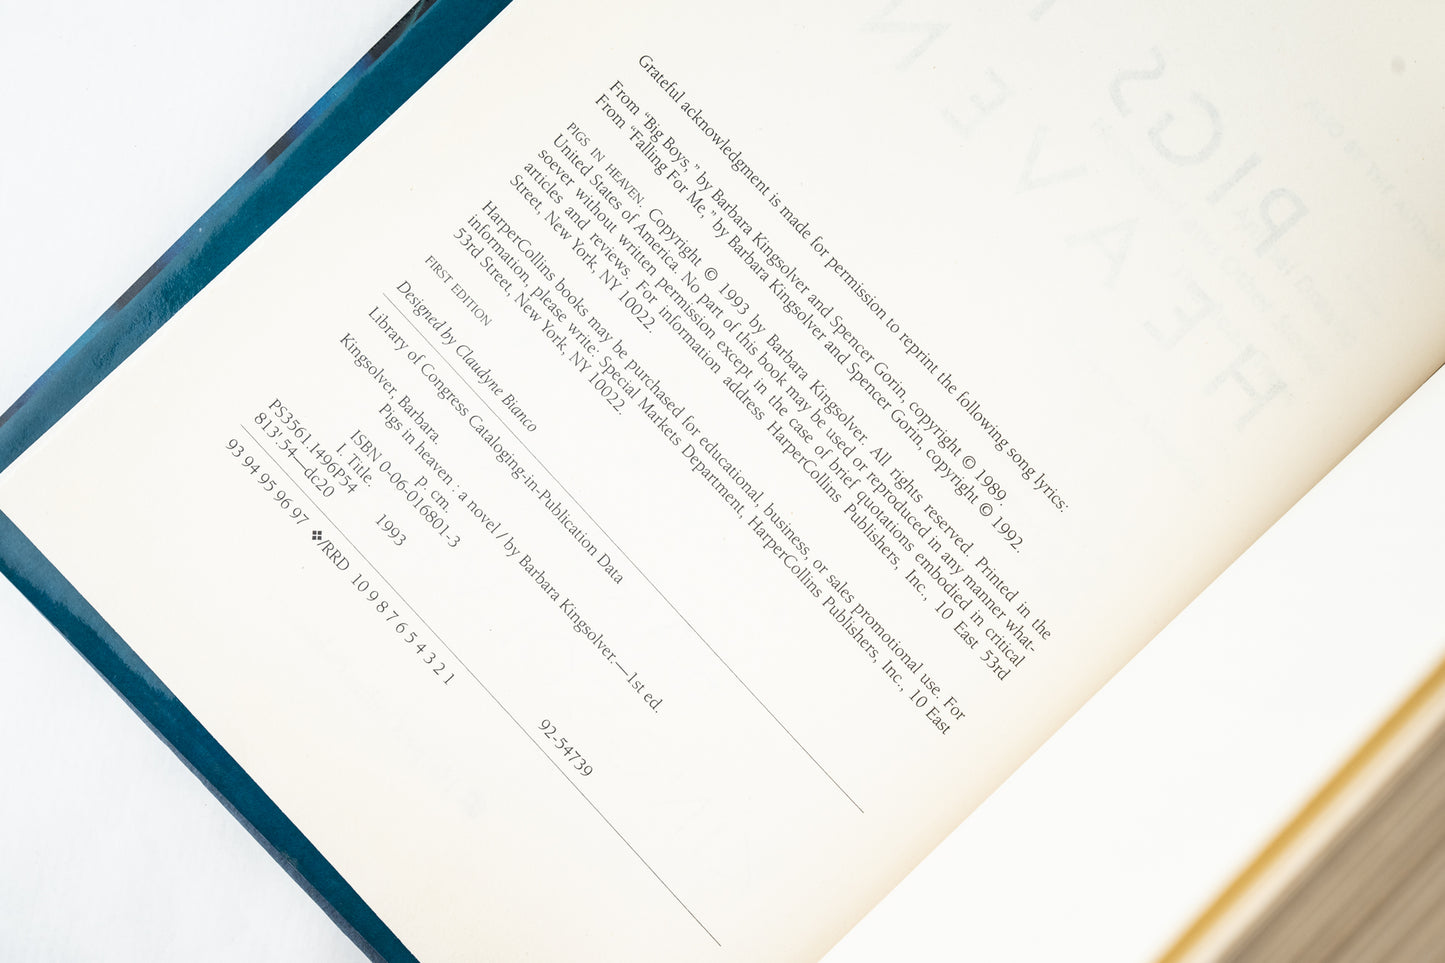 Grateful acknowledgment is made for permission to reprint the following song lyrics:
From “Big Boys,” by Barbara Kingsolver and Spencer Gorin, copyright © 1989.
From “Falling For Me,” by Barbara Kingsolver and Spencer Gorin, copyright © 1992.
PIGS IN HEAVEN. Copyright © 1993 by Barbara Kingsolver. All rights reserved. Printed in the
United States of America. No part of this book may be used or reproduced in any manner what-
soever without written permission except in the case of brief quotations embodied in critical
articles and reviews. For information address HarperCollins Publishers, Inc., 10 East 53rd
Street, New York, NY 10022.
HarperCollins books may be purchased for educational, business, or sales promotional use. For
information, please write: Special Markets Department, HarperCollins Publishers, Inc., 10 East
53rd Street, New York, NY 10022.
FIRST EDITION
Designed by Claudyne Bianco
Library of Congress Cataloging-in-Publication Data
Kingsolver, Barbara.
Pigs in heaven : a novel / by Barbara Kingsolver.—1st ed.
p. cm.
ISBN 0-06-016801-3
I. Title.
PS3561.1496P54 1993
813'.54—dc20 92-54739
93 94 95 96 97 ❖/RRD 10 9 8 7 6 5 4 3 2 1
PIGS
HEAVEN